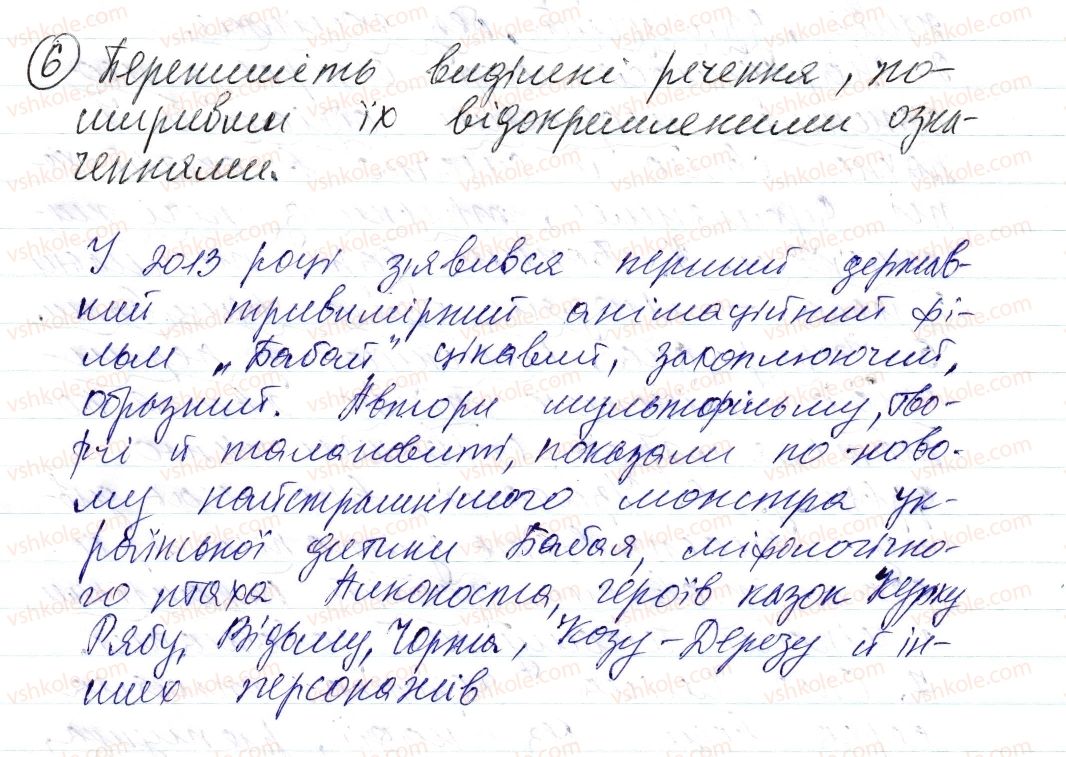 6 Перепишіть виділені речення, по-
ширивши їх відокремленими озна-
ченнями.
У 2013 році зіявився перший держав-
ний тривимірний анімаційний фі-
льм „Бабай” цікавий, захоплюючий,
образний. Автори мультфільму, тво-
рчі й талановиті, показали по-ново-
му найстрашнішого монстра ук-
раїнської дитини Бабая, міфологічно-
го птаха Алконоста, героїв казок Курку
Рябу, Відьму, Чорта, Козу-Дерезу й ін-
ших персонажів